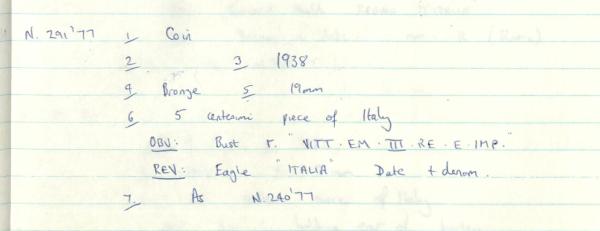 N. 291'77 1 Coin
2 3 1938
4 Bronze 5 19mm
6 5 centesimi piece of Italy
OBV: Bust r. "VITT·EM·III·RE·E·IMP."
REV: Eagle "ITALIA" Date + denom.
7. As N.240'77